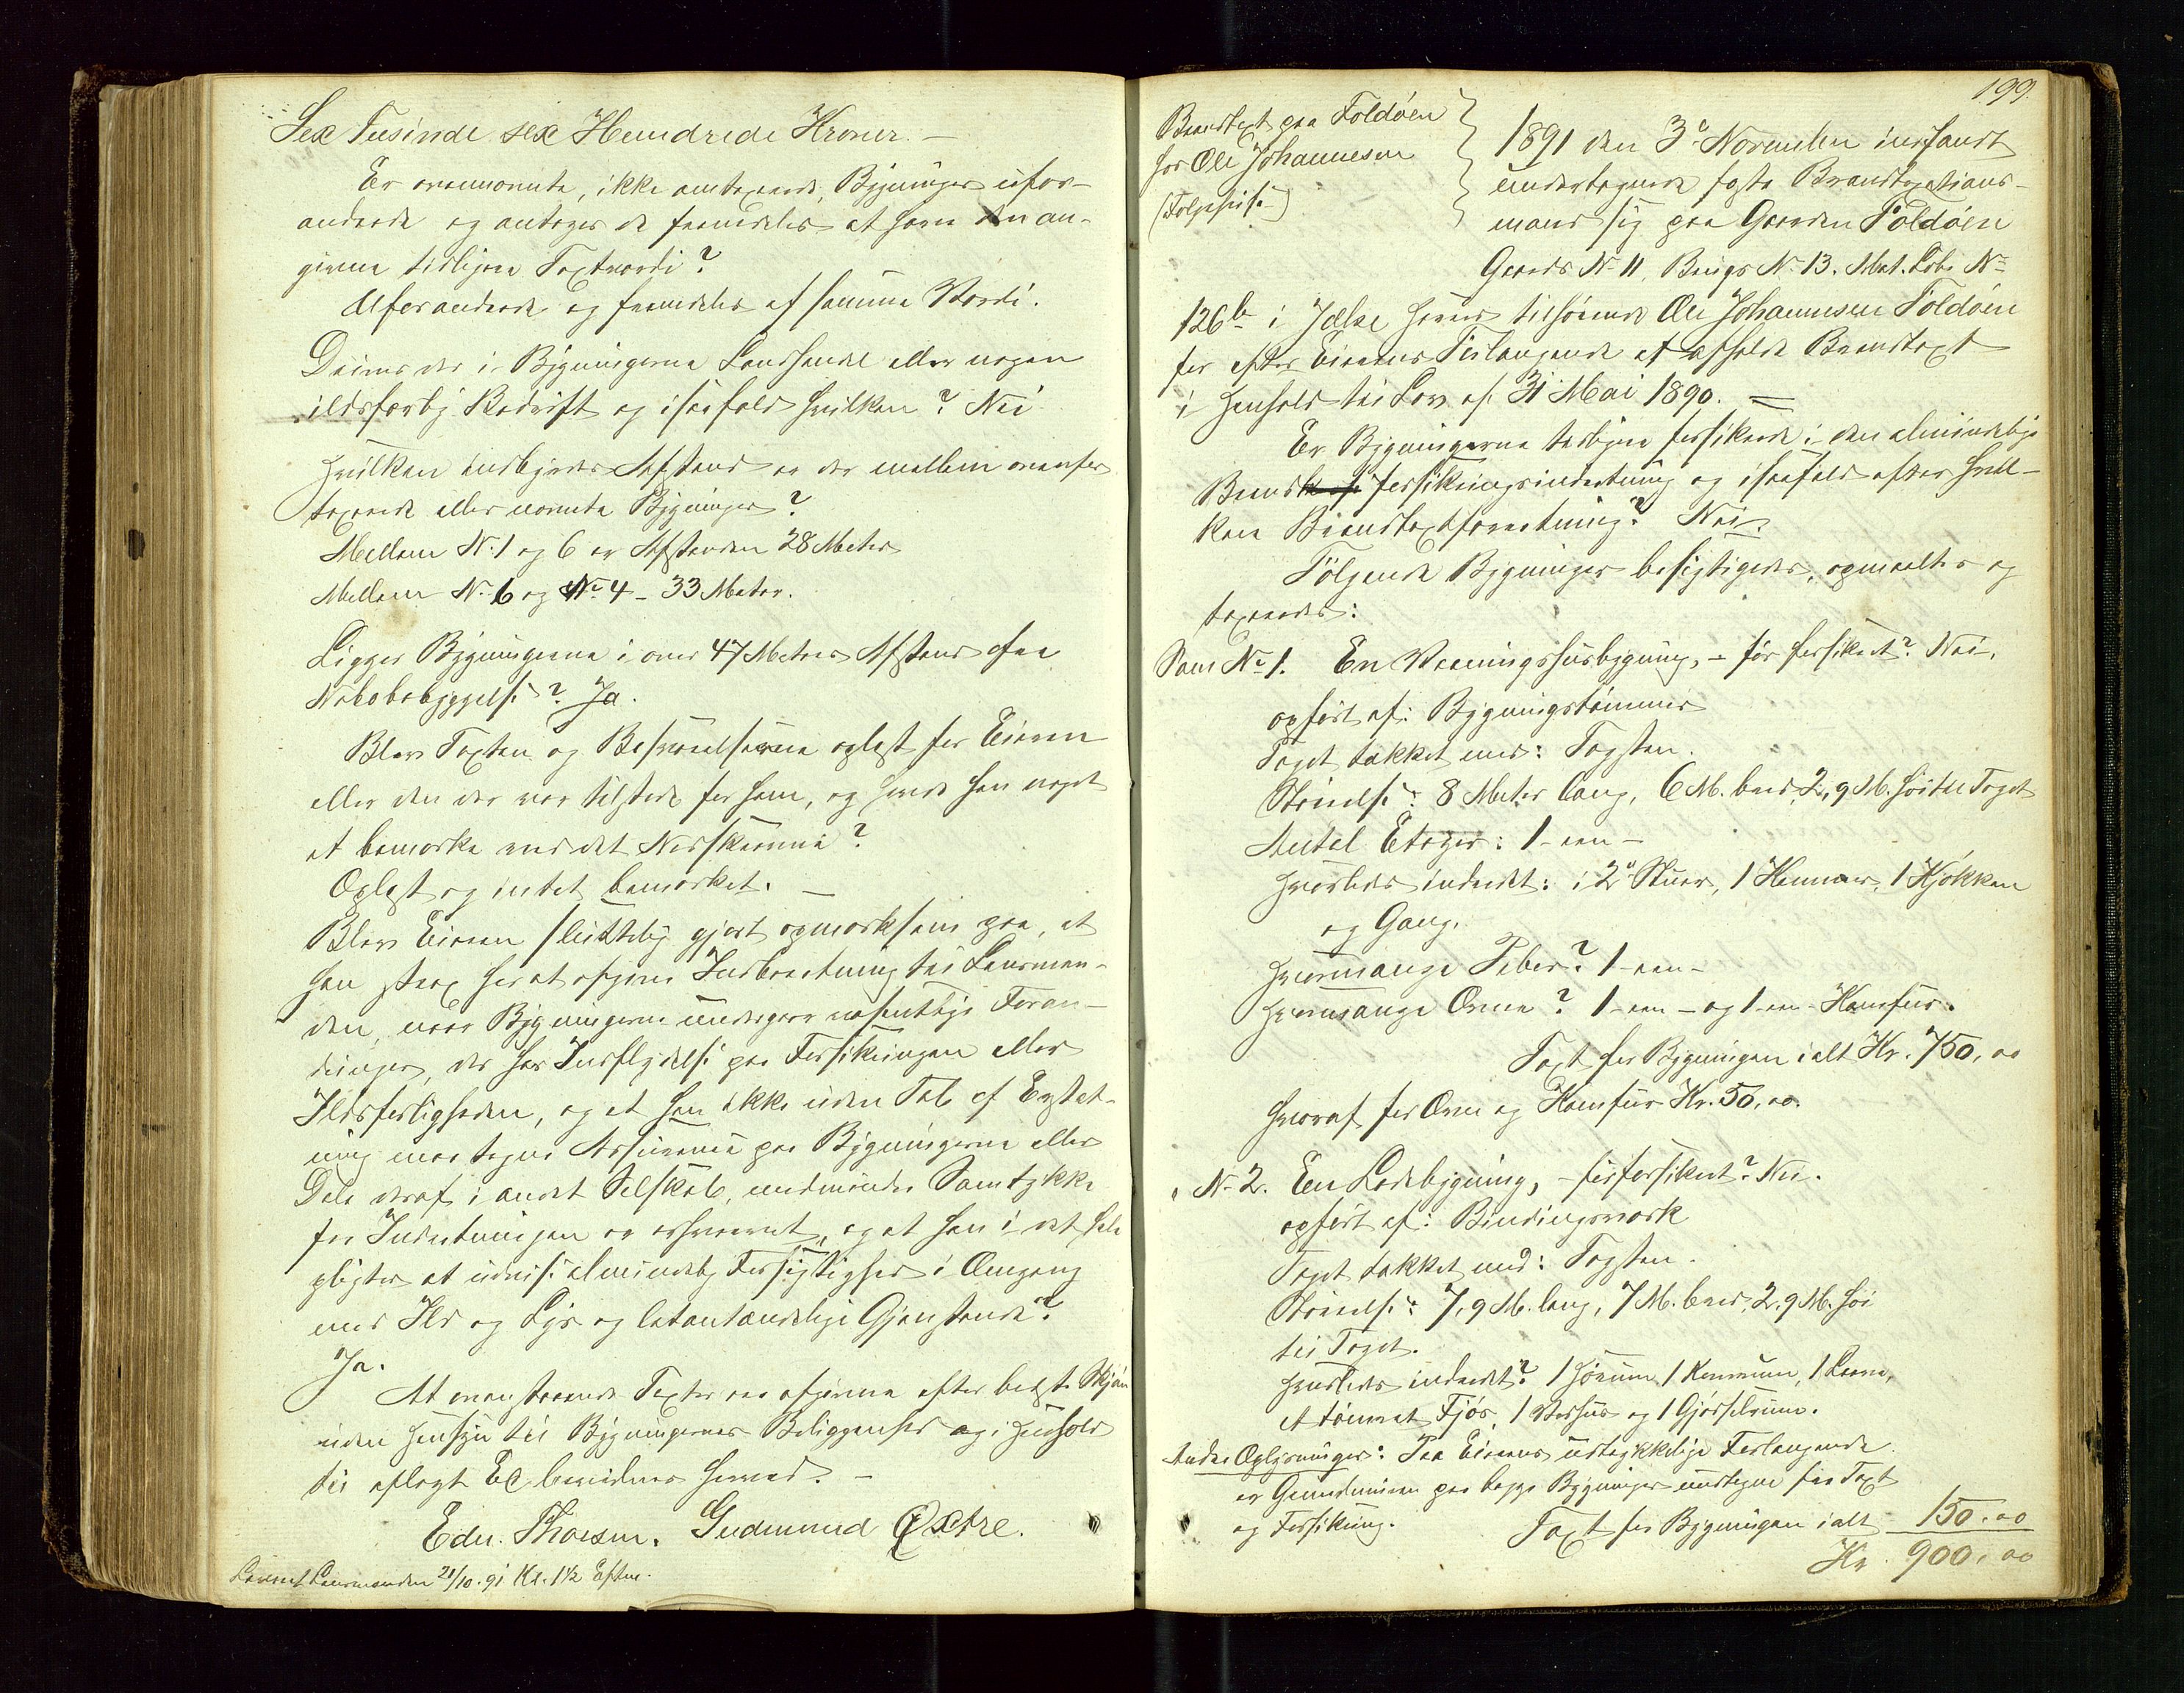 Sex Tusinde sex Hundrede Kroner. —
Er ovennævnte, ikke omtaxerede, Bygninger ufor-
andrede og antages de fremdeles at have den an-
givne tidligere Taxtværdi?
Uforandrede og fremdeles af samme Værdi.
Drives der i Bygningerne Landhandel eller nogen
ildsfarlig Bedrift og i saafald hvilken? Nei
Hvilken indbyrdes Afstand er der mellem ovenfor
taxerede eller nævnte Bygninger?
Mellem N. 1 og 6 er Afstanden 28 Meter
Mellem N. 6 og N. 4 - 33 Meter.
Ligger Bygningerne i over 47 Meters Afstand fra
Nabobebyggelse? Ja.
Blev Taxten og Beskrivelserne oplæst for Eieren
eller den der var tilstede for ham, og havde han noget
at bemærke ved det Nedskrevne?
Oplæst og intet bemærket. —
Blev Eieren sluttelig gjort opmærksom paa, at
han strax har at afgive Indberetning til Lensman-
den, naar Bygningerne undergaar væsentlige Foran-
dringer, der har Indflydelse paa Forsikringen eller
Ildsfarligheden, og at han ikke uden Tab af Erstat-
ning maa tegne Assurance paa Bygningerne eller
Dele deraf i andet Selskab, medmindre Samtykke
fra Indretningen er erhvervet, og at han i det hele
pligter at udvise almindelig Forsigtighed i Omgang
med Ild og Lys og letantændelige Gjenstande?
Ja.
At ovenstaaende Taxter ere afgivne efter bedste Skjøn
uden Hensyn til Bygningernes Beliggenhed og i Henhold
til aflagt Ed bevidnes herved. —
Edv. Thoesen. Gudmund Østre.
Leveret Lensmanden 21/10. 91 Kl. 1 1/2 Efterm.
199.
Brandtaxt paa Foldöen
hos Ole Johannesen
1891 den 3. November indfandt
undertegnede faste Brandtaxtations-
mænd sig paa Gaarden Foldöen
Gaards N. 11, Brugs N. 13. Mat. Løbe N.
126 b i Jelse Sogn tilhørende Ole Johannesen Foldöen
for efter Eierens Forlangende at afholde Brandtaxt
i Henhold til Lov af 31 Mai 1890. —
Er Bygningerne tidligere forsikrede i den almindelige
Brandforsikringsindretning og i saafald efter hvil-
ken Brandtaxtforretning? Nei.
Følgende Bygninger besigtigedes, opmaaltes og
taxeredes:
Som N. 1. En Vaaningshusbygning, - før forsikret? Nei.
opført af: Bygningstømmer
Taget tækket med: Tagsten.
Størrelse: 8 Meter lang, 6 M. bred, 2,9 M. høi til Taget
Antal Etager: 1 - een -
Hvorledes indredet: i 2 Stuer, 1 Kammer, 1 Kjøkken
og Gang.
Hvormange Piber? 1 - een -
Hvormange Ovne? 1 - een - og 1 - een - Komfur.
Taxt for Bygningen i alt Kr. 750, 00
hvoraf for Ovn og Komfur Kr. 50, 00.
" N. 2. En Ladebygning, - før forsikret? Nei.
opført af: Bindingsværk
Taget tækket med: Tagsten.
Størrelse: 7,9 M. lang, 7 M. bred, 2,9 M. høi
til Taget.
Hvorledes indredet? 1 Hörum, 1 Kornrum, 1 Laave,
et tømret Fjøs, 1 Vedhus og 1 Gjødselrum.
Andre Oplysninger: Paa Eierens udtrykkelige Forlangende
er Grundmuren paa begge Bygninger undtagne fra Taxt
og Forsikring. Taxt for Bygningen i alt 150. 00
Kr. 900. 00